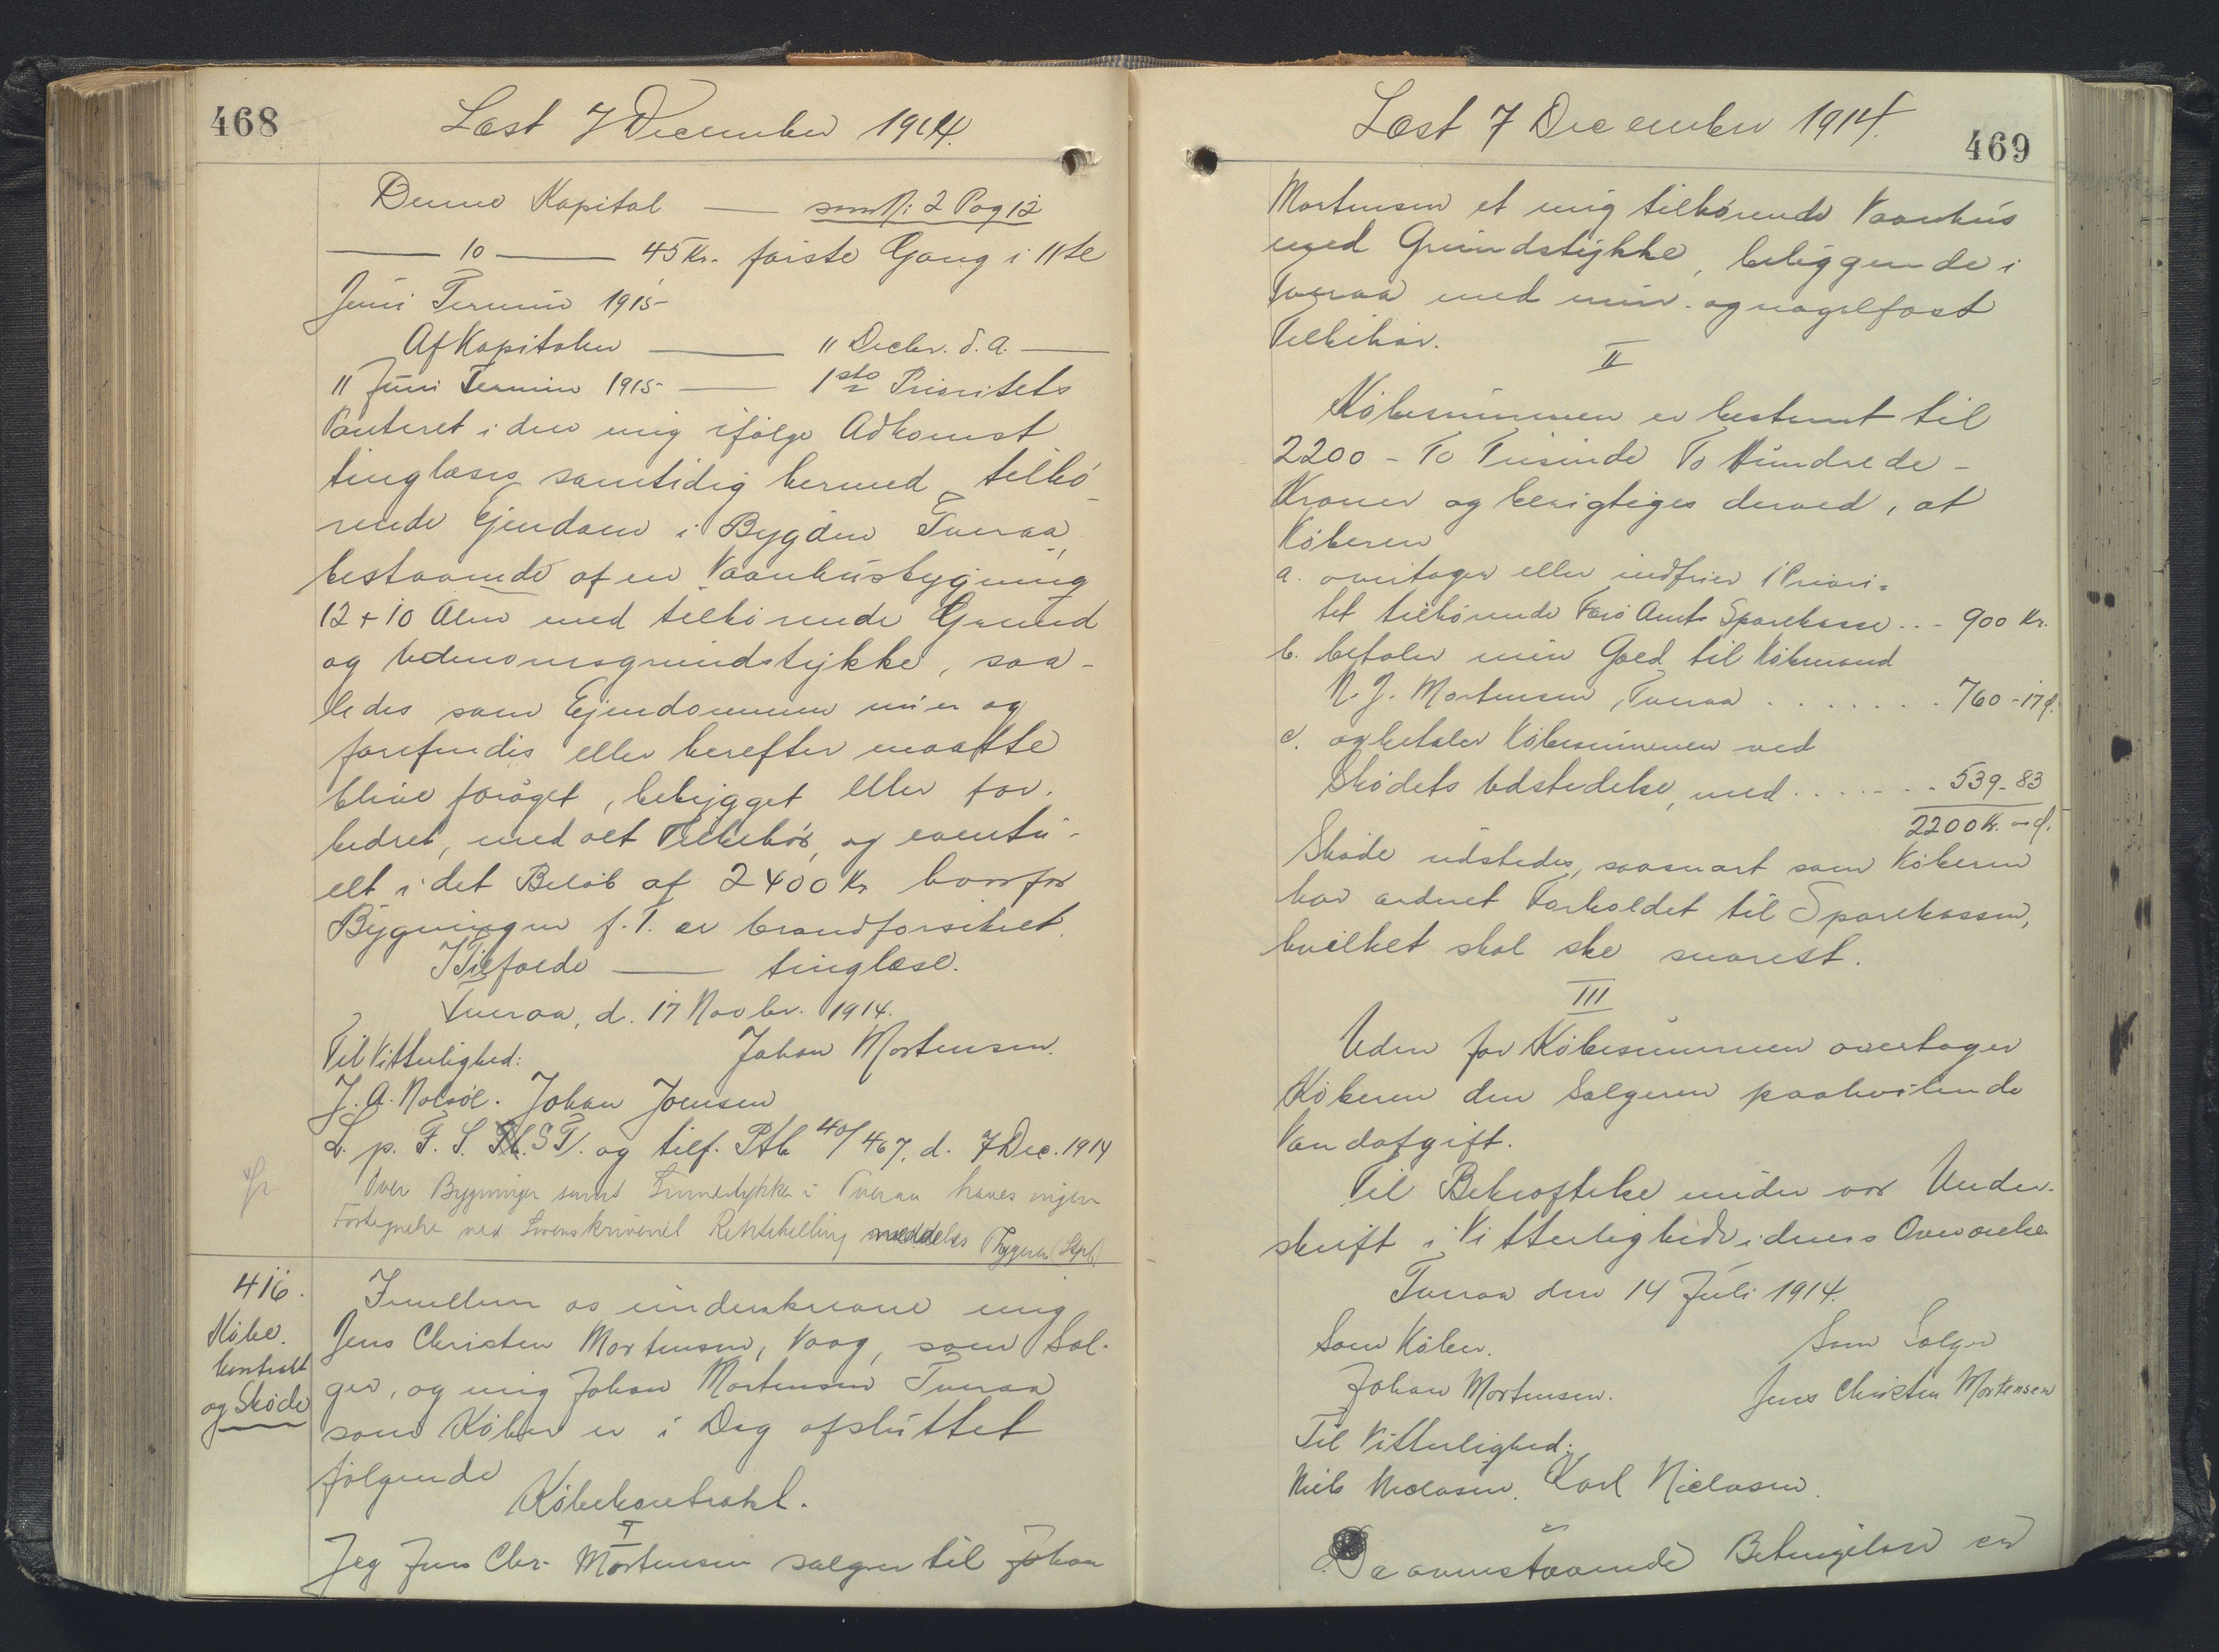 468
Læst 7 December 1914.
Denne Kapital — som N: 2 Pag 12
— 10 — 45 Kr. første Gang i 11te
Juni Termin 1915
Af Kapitalen — 11 Decbr. d. A. —
11 Juni Termin 1915 — 1ste Prioritets
Panteret i den mig ifølge Adkomst
tinglæses samtidig hermed tilhø-
rende Ejendom i Bygden Tveraa,
bestaaende af en Vaanhusbygning
12 + 10 Alen med tilhørende Grund
og Udenomsgrundstykke, saa-
ledes som Ejendommen nu er og
forefindes eller herefter maatte
blive forøget, bebygget eller for-
bedret, med alt Tilbehør, og eventu-
elt i det Beløb af 2400 Kr hvorfor
Bygningen f. T. er brandforsikret.
I Tilfælde — tinglæse.
Tveraa, d. 17 Novbr. 1914.
Til Vitterlighed: Johan Mortensen.
J. A. Nolsøe. Johan Joensen
L. p. F. S. S T. og tilf. Ptb 40/467. d. 7 Dec. 1914
Over Bygninger samt i Tveraa haves ingen
Fortegnelse ved Sorenskriveriet meddeles
416.
Købe-
kontrakt
og Skøde
Imellem os underskrevne mig
Jens Christen Mortensen, Vaag, som Sæl-
ger, og mig Johan Mortensen Tveraa
som Køber er i Dag afsluttet
følgende
Købekontrakt.
I
Jeg Jens Chr. Mortensen sælger til Johan
Læst 7 December 1914.
469
Mortensen et mig tilhørende Vaanhus
med Grundstykke, beliggende i
Tveraa med mur- og nagelfast
Tilbehør.
II
Købesummen er bestemt til
2200 - To Tusinde To Hundrede -
Kroner og berigtiges derved, at
Køberen
a. overtager eller indfrier 1 Priori-
tet tilhørende Færø Amts Sparekasse . . - 900 Kr.
b. betaler min Gæld til Købmand
N. J. Mortensen, Tveraa . . . . . . . 760 - 17 Ø.
c. og betaler Købesummen ved
Skødets Udstedelse, med . . . . . . 539 - 83
2200 Kr. - Ø.
Skøde udstedes, saasnart som Køberen
har ordnet Forholdet til Sparekassen,
hvilket skal ske snarest.
III
Uden for Købesummen overtager
Køberen den Sælgeren paahvilende
Vandafgift.
Til Bekræftelse under vor Under-
skrift i Vitterlighedsvidners Overværelse.
Tveraa den 14 Juli 1914.
Som Køber. Som Sælger
Johan Mortensen. Jens Christen Mortensen
Til Vitterlighed:
Niels Niclasen. Karl Niclasen.
Da ovenstaaende Betingelser er